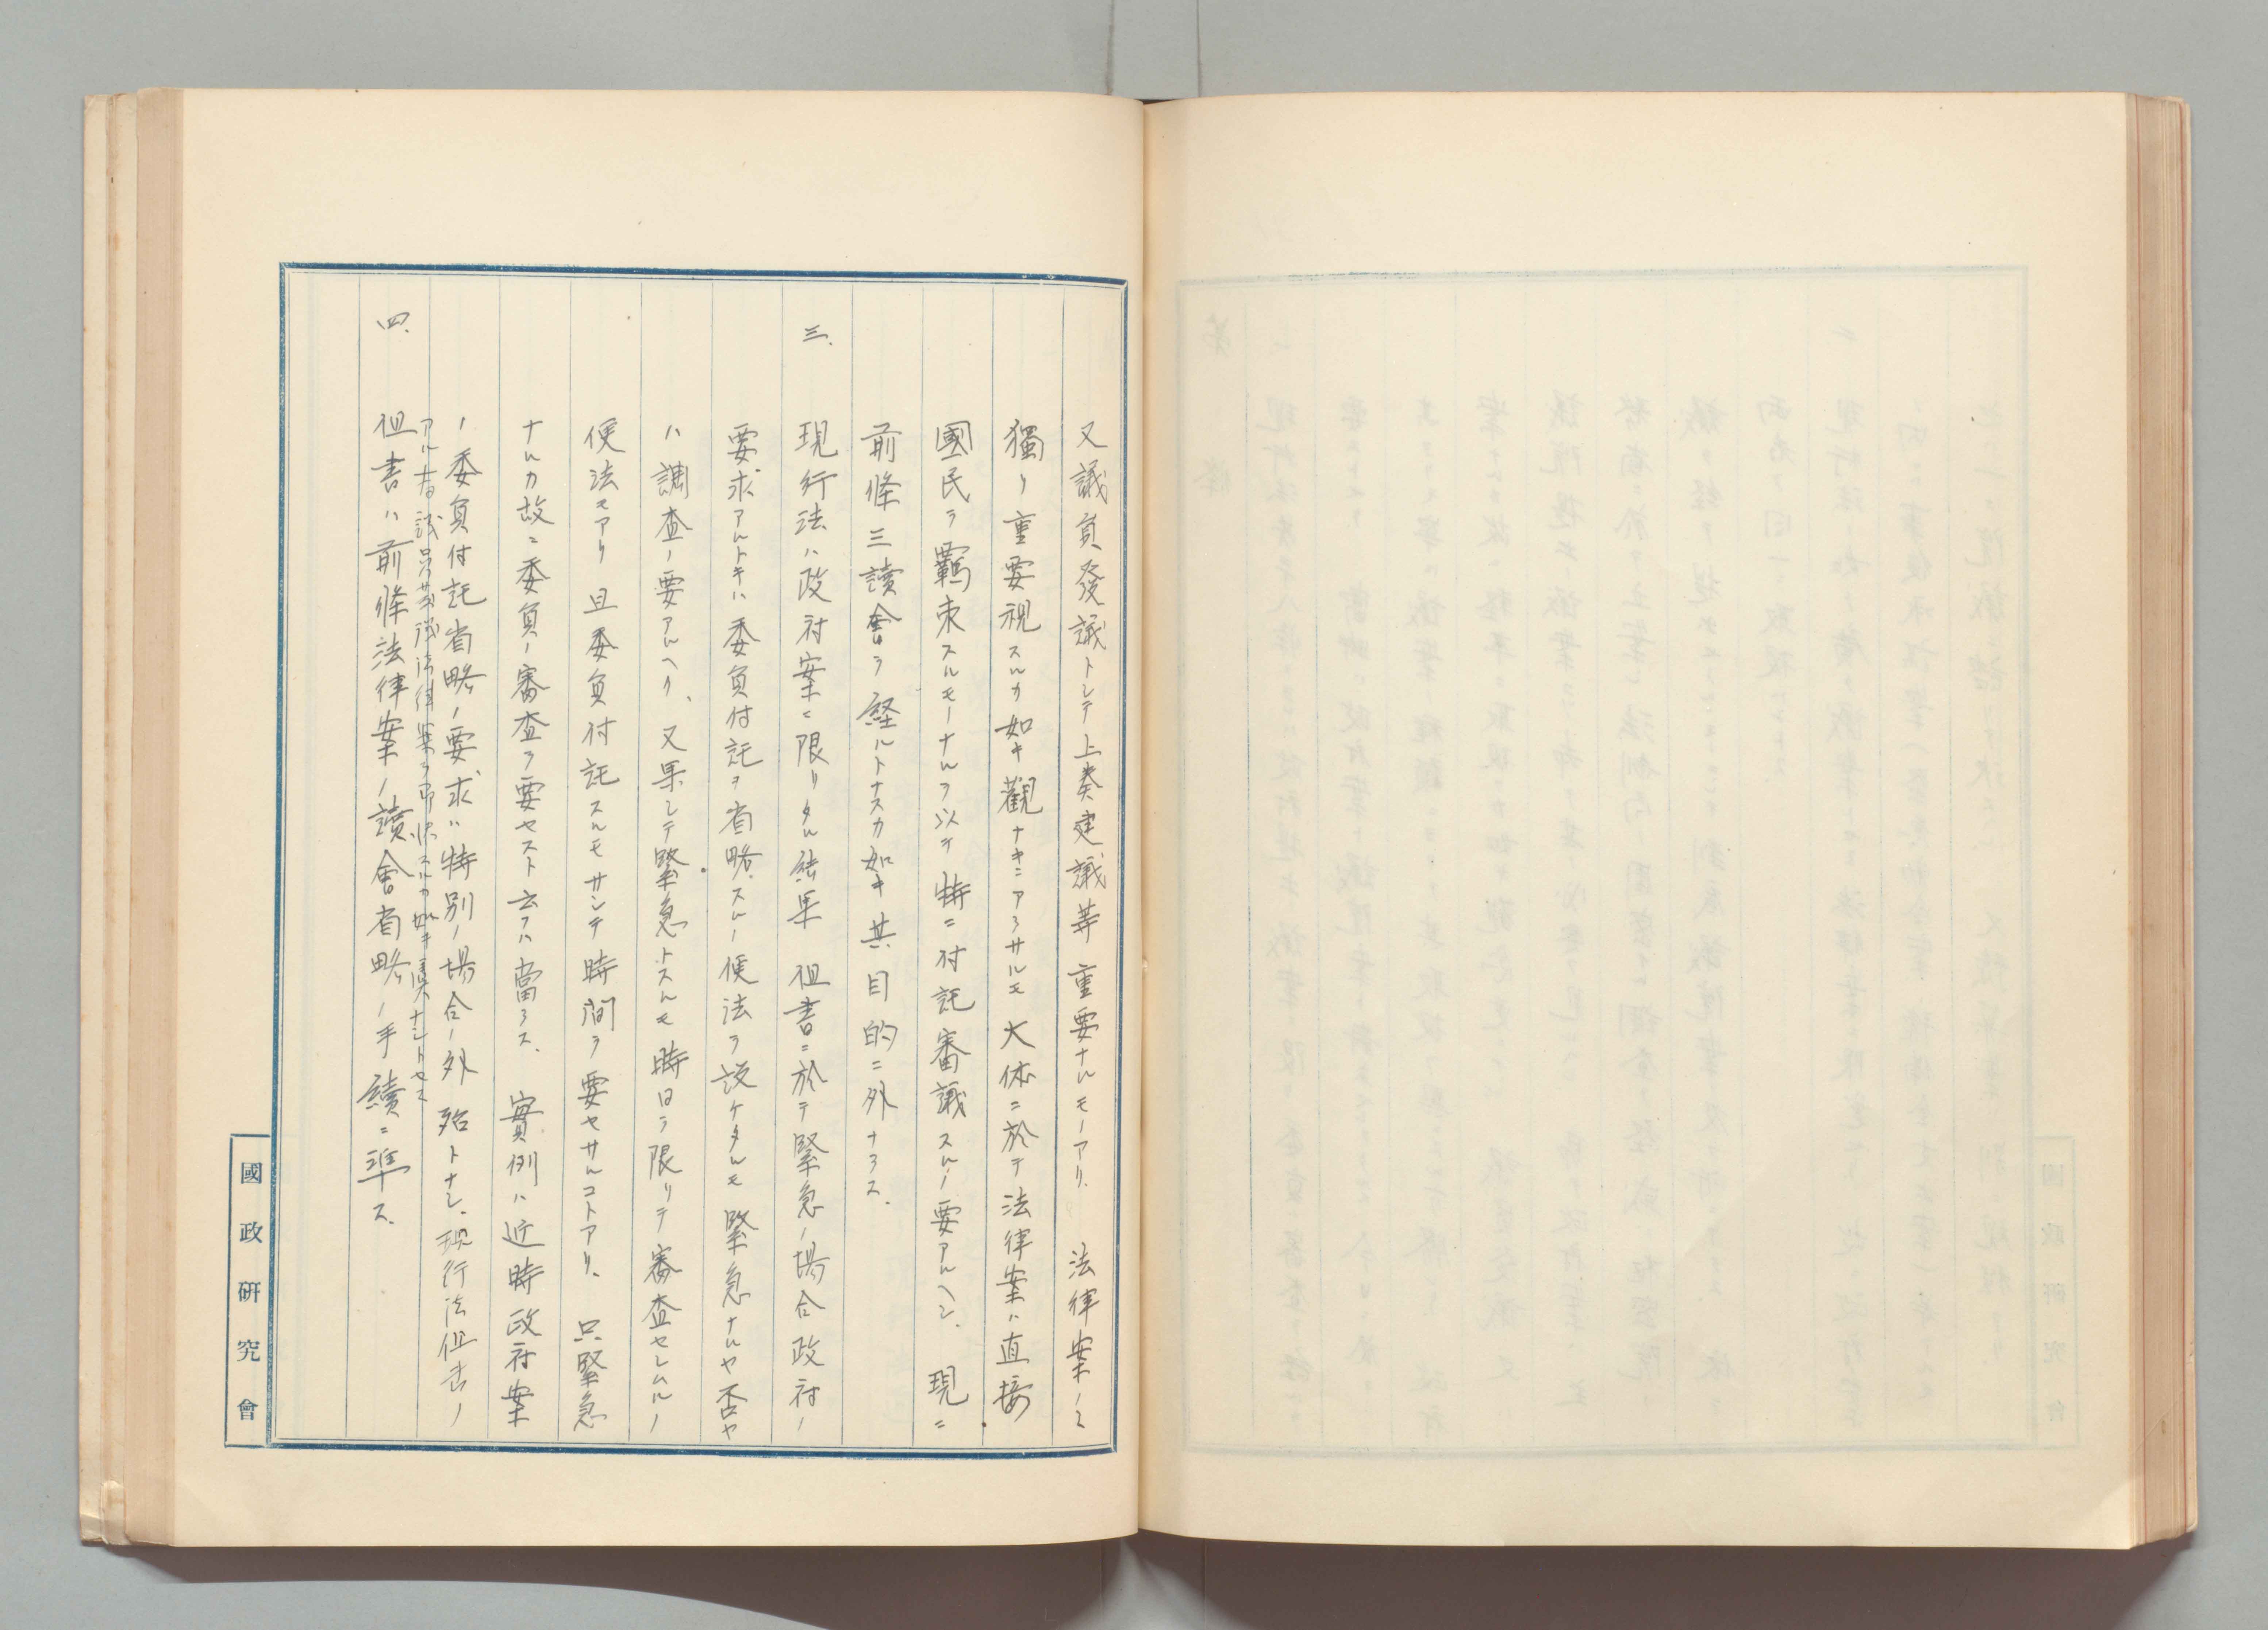 又議員發議トシテ上奏建議等重要ナルモノアリ. 法律案ノミ
獨リ重要視スルカ如キ觀ナキニアラサルモ大体ニ於テ法律案ハ直接
國民ヲ羈束スルモノナルヲ以テ特ニ付託審議スルノ要アルヘシ. 現ニ
前條三讀會ヲ経ルトナスカ如キ其目的ニ外ナラス.
三. 現行法ハ政府案ニ限リタル結果但書ニ於テ緊急ノ場合政府ノ
要求アルトキハ委員付託ヲ省略スルノ便法ヲ設ケタルモ緊急ナルヤ否ヤ
ハ調査ノ要アルヘク、又果シテ緊急トスルモ時日ヲ限リテ審査セシムルノ
便法モアリ且委員付託スルモサシテ時間ヲ要セサルコトアリ、只緊急
ナルカ故ニ委員ノ審査ヲ要セスト云フハ當ラス. 實例ハ近時政府案
ノ委員付託省略ノ要求ハ特別ノ場合ノ外殆トナシ. 現行法但書ノ
アル為議員發議法律案ヲ スルカ如キ ナシトセス
四. 但書ハ前條法律案ノ讀會省略ノ手續ニ準ス.
國政研究會